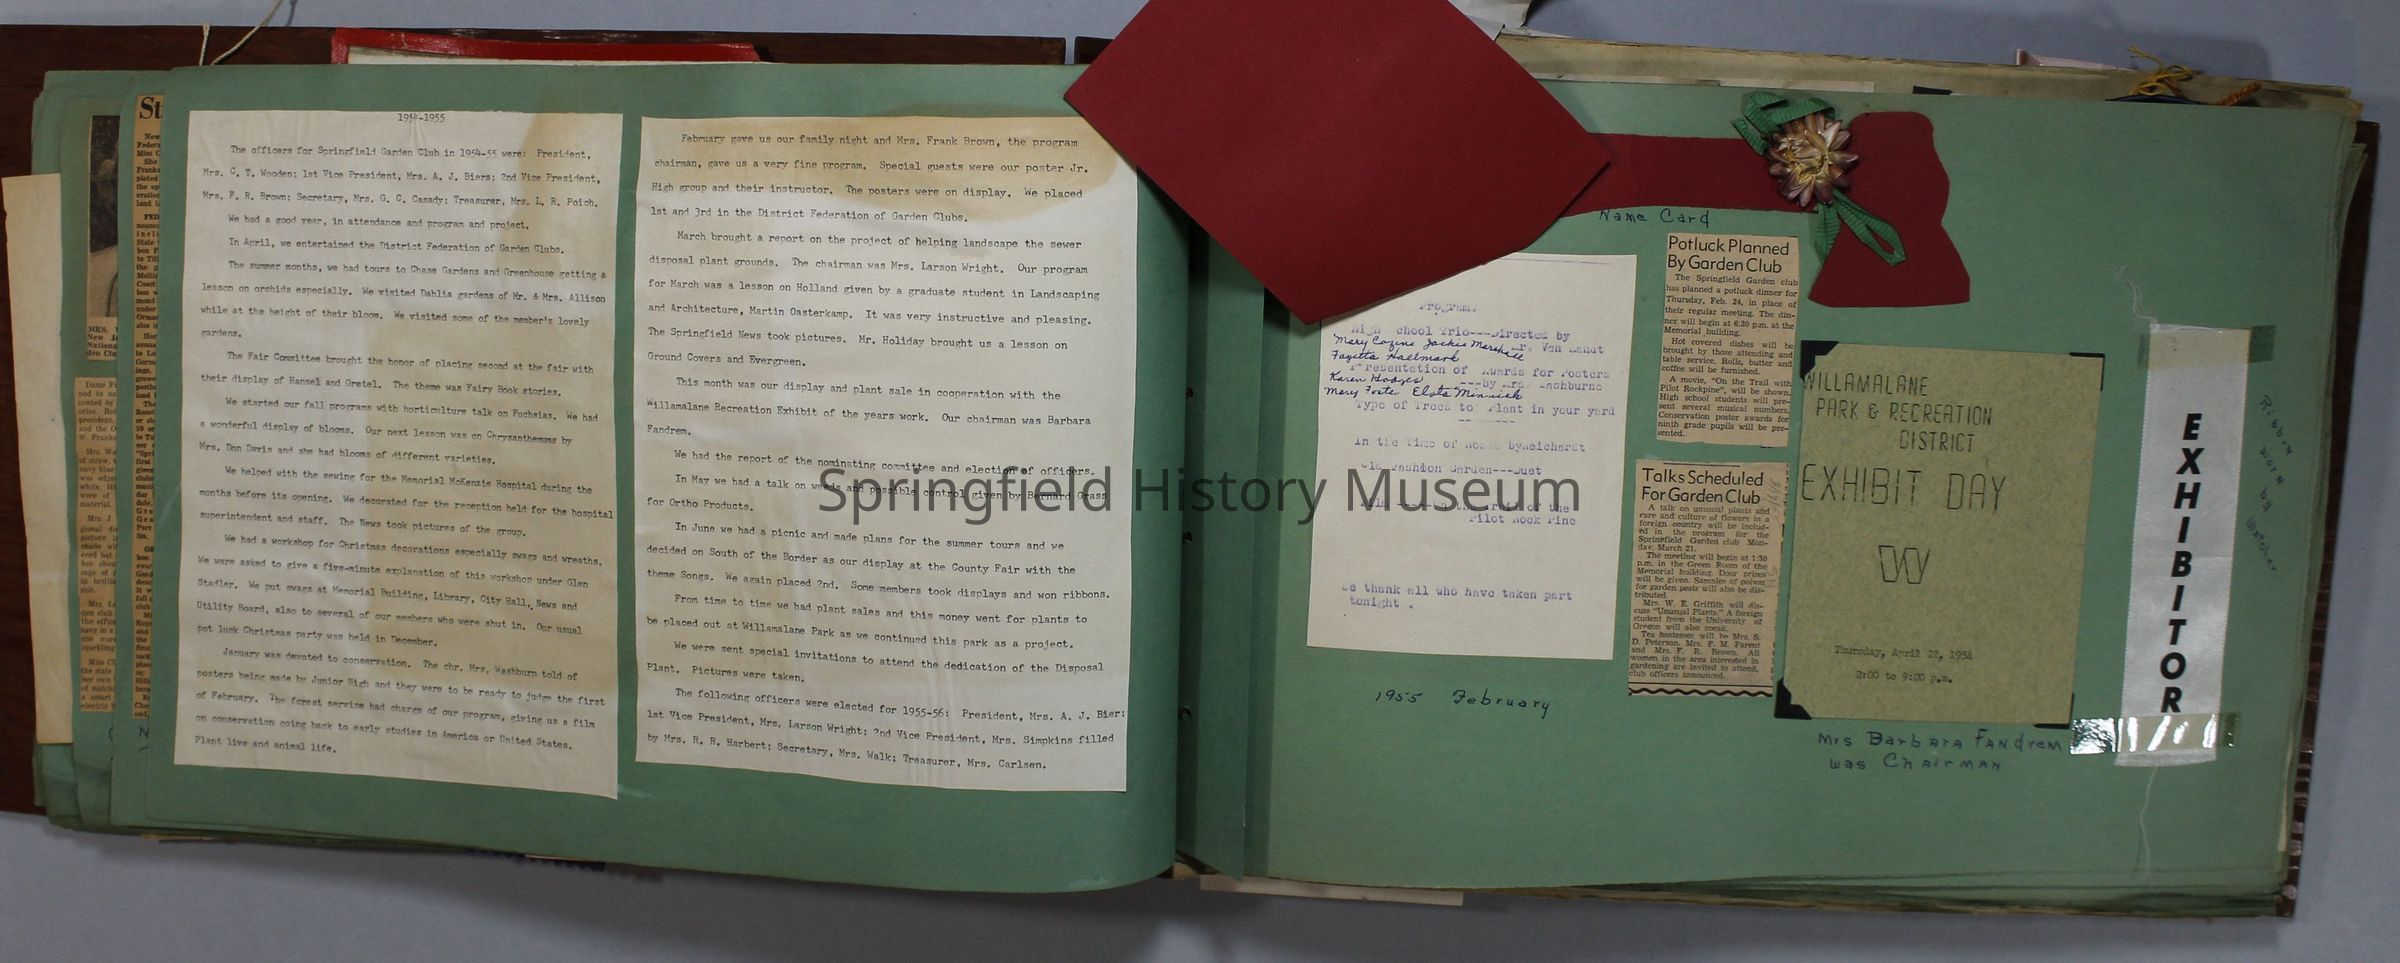 1954-1955
The officers for Springfield Garden Club in 1954-55 were: President,
Mrs. C. T. Wooden; 1st Vice President, Mrs. A. J. Biers; 2nd Vice President,
Mrs. F. R. Brown; Secretary, Mrs. G. C. Casady; Treasurer, Mrs. L. R. Poich.
We had a good year, in attendance and program and project.
In April, we entertained the District Federation of Garden Clubs.
The summer months, we had tours to Chase Gardens and Greenhouse getting a
lesson on orchids especially. We visited Dahlia gardens of Mr. & Mrs. Allison
while at the height of their bloom. We visited some of the member's lovely
gardens.
The Fair Committee brought the honor of placing second at the fair with
their display of Hansel and Gretel. The theme was Fairy Book stories.
We started our fall programs with horticulture talk on Fuchsias. We had
a wonderful display of blooms. Our next lesson was on Chrysanthemums by
Mrs. Don Davis and she had blooms of different varieties.
We helped with the sewing for the Memorial McKenzie Hospital during the
months before its opening. We decorated for the reception held for the hospital
superintendent and staff. The News took pictures of the group.
We had a workshop for Christmas decorations especially swags and wreaths.
We were asked to give a five-minute explanation of this workshop under Glen
Stadler. We put swags at Memorial Building, Library, City Hall, News and
Utility Board, also to several of our members who were shut in. Our usual
pot luck Christmas party was held in December.
January was devoted to conservation. The chr. Mrs. Washburn told of
posters being made by Junior High and they were to be ready to judge the first
of February. The forest service had charge of our program, giving us a film
on conservation going back to early studies in America or United States.
Plant live and animal life.
February gave us our family night and Mrs. Frank Brown, the program
chairman, gave us a very fine program. Special guests were our poster Jr.
High group and their instructor. The posters were on display. We placed
1st and 3rd in the District Federation of Garden Clubs.
March brought a report on the project of helping landscape the sewer
disposal plant grounds. The chairman was Mrs. Larson Wright. Our program
for March was a lesson on Holland given by a graduate student in Landscaping
and Architecture, Martin Oasterkamp. It was very instructive and pleasing.
The Springfield News took pictures. Mr. Holiday brought us a lesson on
Ground Covers and Evergreen.
This month was our display and plant sale in cooperation with the
Willamalane Recreation Exhibit of the years work. Our chairman was Barbara
Fandrem.
We had the report of the nominating committee and election of officers.
In May we had a talk on weeds and possible control given by Bernard Grass
for Ortho Products.
In June we had a picnic and made plans for the summer tours and we
decided on South of the Border as our display at the County Fair with the
theme Songs. We again placed 2nd. Some members took displays and won ribbons.
From time to time we had plant sales and this money went for plants to
be placed out at Willamalane Park as we continued this park as a project.
We were sent special invitations to attend the dedication of the Disposal
Plant. Pictures were taken.
The following officers were elected for 1955-56: President, Mrs. A. J. Bier;
1st Vice President, Mrs. Larson Wright; 2nd Vice President, Mrs. Simpkins filled
by Mrs. R. R. Harbert; Secretary, Mrs. Walk; Treasurer, Mrs. Carlsen.
Name Card
Program.
High School Trio---Directed by
Mary Cozine Jackie Marshall Mr. Van Zandt
Fayetta Hallmark
Presentation of Awards for Posters
Karen Hodges ---by Mrs. Washburne
Mary Foster Elsta Minnick
Type of Trees to Plant in your yard
In the Time of Roses by Reichardt
Old Fashion Garden---Duet
of the
Pilot Rock Pine
We thank all who have taken part
tonight .
1955 February
Potluck Planned
By Garden Club
The Springfield Garden club
has planned a potluck dinner for
Thursday, Feb. 24, in place of
their regular meeting. The din-
ner will begin at 6:30 p.m. at the
Memorial building.
Hot covered dishes will be
brought by those attending and
table service. Rolls, butter and
coffee will be furnished.
A movie, "On the Trail with
Pilot Rockpine", will be shown.
High school students will pre-
sent several musical numbers.
Conservation poster awards for
ninth grade pupils will be pre-
sented.
Talks Scheduled
For Garden Club
A talk on unusual plants and
care and culture of flowers in a
foreign country will be includ-
ed in the program for the
Springfield Garden club Mon-
day, March 21.
The meeting will begin at 1:30
p.m. in the Green Room of the
Memorial building. Door prizes
will be given. Samples of poison
for garden pests will also be dis-
tributed.
Mrs. W. E. Griffith will dis-
cuss "Unusual Plants." A foreign
student from the University of
Oregon will also speak.
Tea hostesses will be Mrs. S.
D. Peterson, Mrs. F. M. Parent
and Mrs. F. R. Brown. All
women in the area interested in
gardening are invited to attend,
club officers announced.
WILLAMALANE
PARK & RECREATION
DISTRICT
EXHIBIT DAY
W
Thursday, April 22, 1954
2:00 to 9:00 p.m.
Mrs Barbara Fandrem
was Chairman
EXHIBITOR
Ribbon worn by
Springfield History Museum